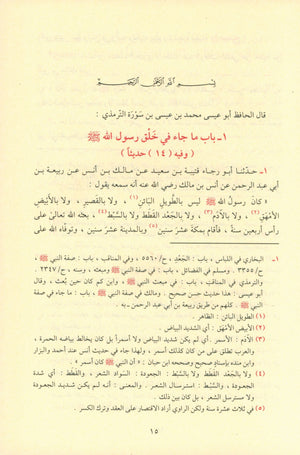 بسم الله الرحمن الرحيم
قال الحافظ أبو عيسى محمد بن عيسى بن سَوْرَة الترمذي :
١ - باب ما جاء في خَلْق رسول الله ﷺ
( وفيه ( ١٤ ) حديثاً )
١ - حدّثنا أبو رجاء قتيبة بن سعيد عن مالك بن أنس عن ربيعة بن
أبي عبد الرحمن عن أنس بن مالك رضي الله عنه أنه سمعه يقول :
« كَانَ رسولُ اللهِ ﷺ ليس بالطّويلِ البَائِنِ (١) ، ولا بالقَصِيرِ ، ولا بالأَبْيَضِ
الأمْهَقِ (٢) ، ولا بالآدَمِ (٣) ، ولا بالجَعْدِ القَطَطِ ولا بالسَّبْطِ (٤) ، بعثَه الله تعالىٰ على
رأس أربعين سنةً ، فأقام بمكةَ عشرَ سنين (٥) وبالمدينة عشرَ سنين ، وتوفَّاه الله على
١ - البخاري في اللباس ، باب : الجَعْدِ ، ح/٥٥٦٠ ، وفي المناقب ، باب : صفة النبي ﷺ ،
ح/٣٣٥٥ . ومسلم في الفضائل ، باب : في صفة النبي ﷺ ومبعثه ، وسنه ، ح/٢٣٤٧ .
والترمذي في المناقب ، باب : في مبعث النبي ﷺ ، وابن كم كان حين بُعث ، وقال
أبو عيسى : هذا حديث حسن صحيح . ومالك في صفة النبي ﷺ ، باب : ما جاء في صفة
النبي ﷺ . كلهم من طريق ربيعة بن أبي عبد الرحمن به .
(١) الطويل البائن : الظاهر .
(٢) الأبيض الأمْهَق : أي الشديد البياض .
(٣) الآدَم : الأسمر . أي لم يكن شديد البياض ولا أسمرَ بل كان يخالط بياضه الحمرة ،
والعرب تطلق على من كان كذلك أسمر ، ولهذا جاء في حديث أنس عند أحمد والبزار
وابن منده بإسناد صحيح وصححه ابن حبان : « أن النبي ﷺ كان أسمر » .
(٤) ولا بالجَعْد القَطَط ولا بالسَّبْط : الجعودة : التواء الشعر ، والقطط : أي شديد
الجعودة ، والسَّبْط : استرسال الشعر . والمعنى : أنه لم يكن شديد الجعودة
ولا مسترسل الشعر ، بل كان بين ذلك .
(٥) في ثلاث عشرة سنة ولكن الراوي أراد الاقتصار على العقد وترك الكسر .
١٥